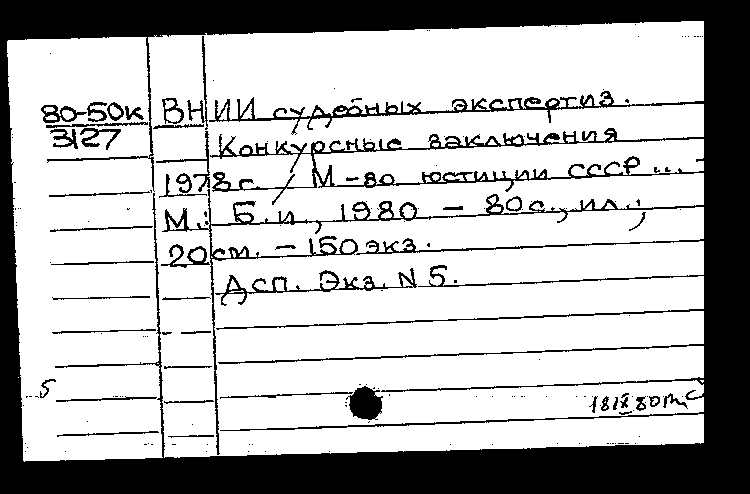 80-50к ВНИИ судебных экспертиз.
3127 Конкурсные заключения
1978г. / М-во юстиции СССР ... -
М.: Б.и., 1980 - 80с., ил.;
20см. - 150экз.
Дсп. Экз. N 5.
5
18IX80